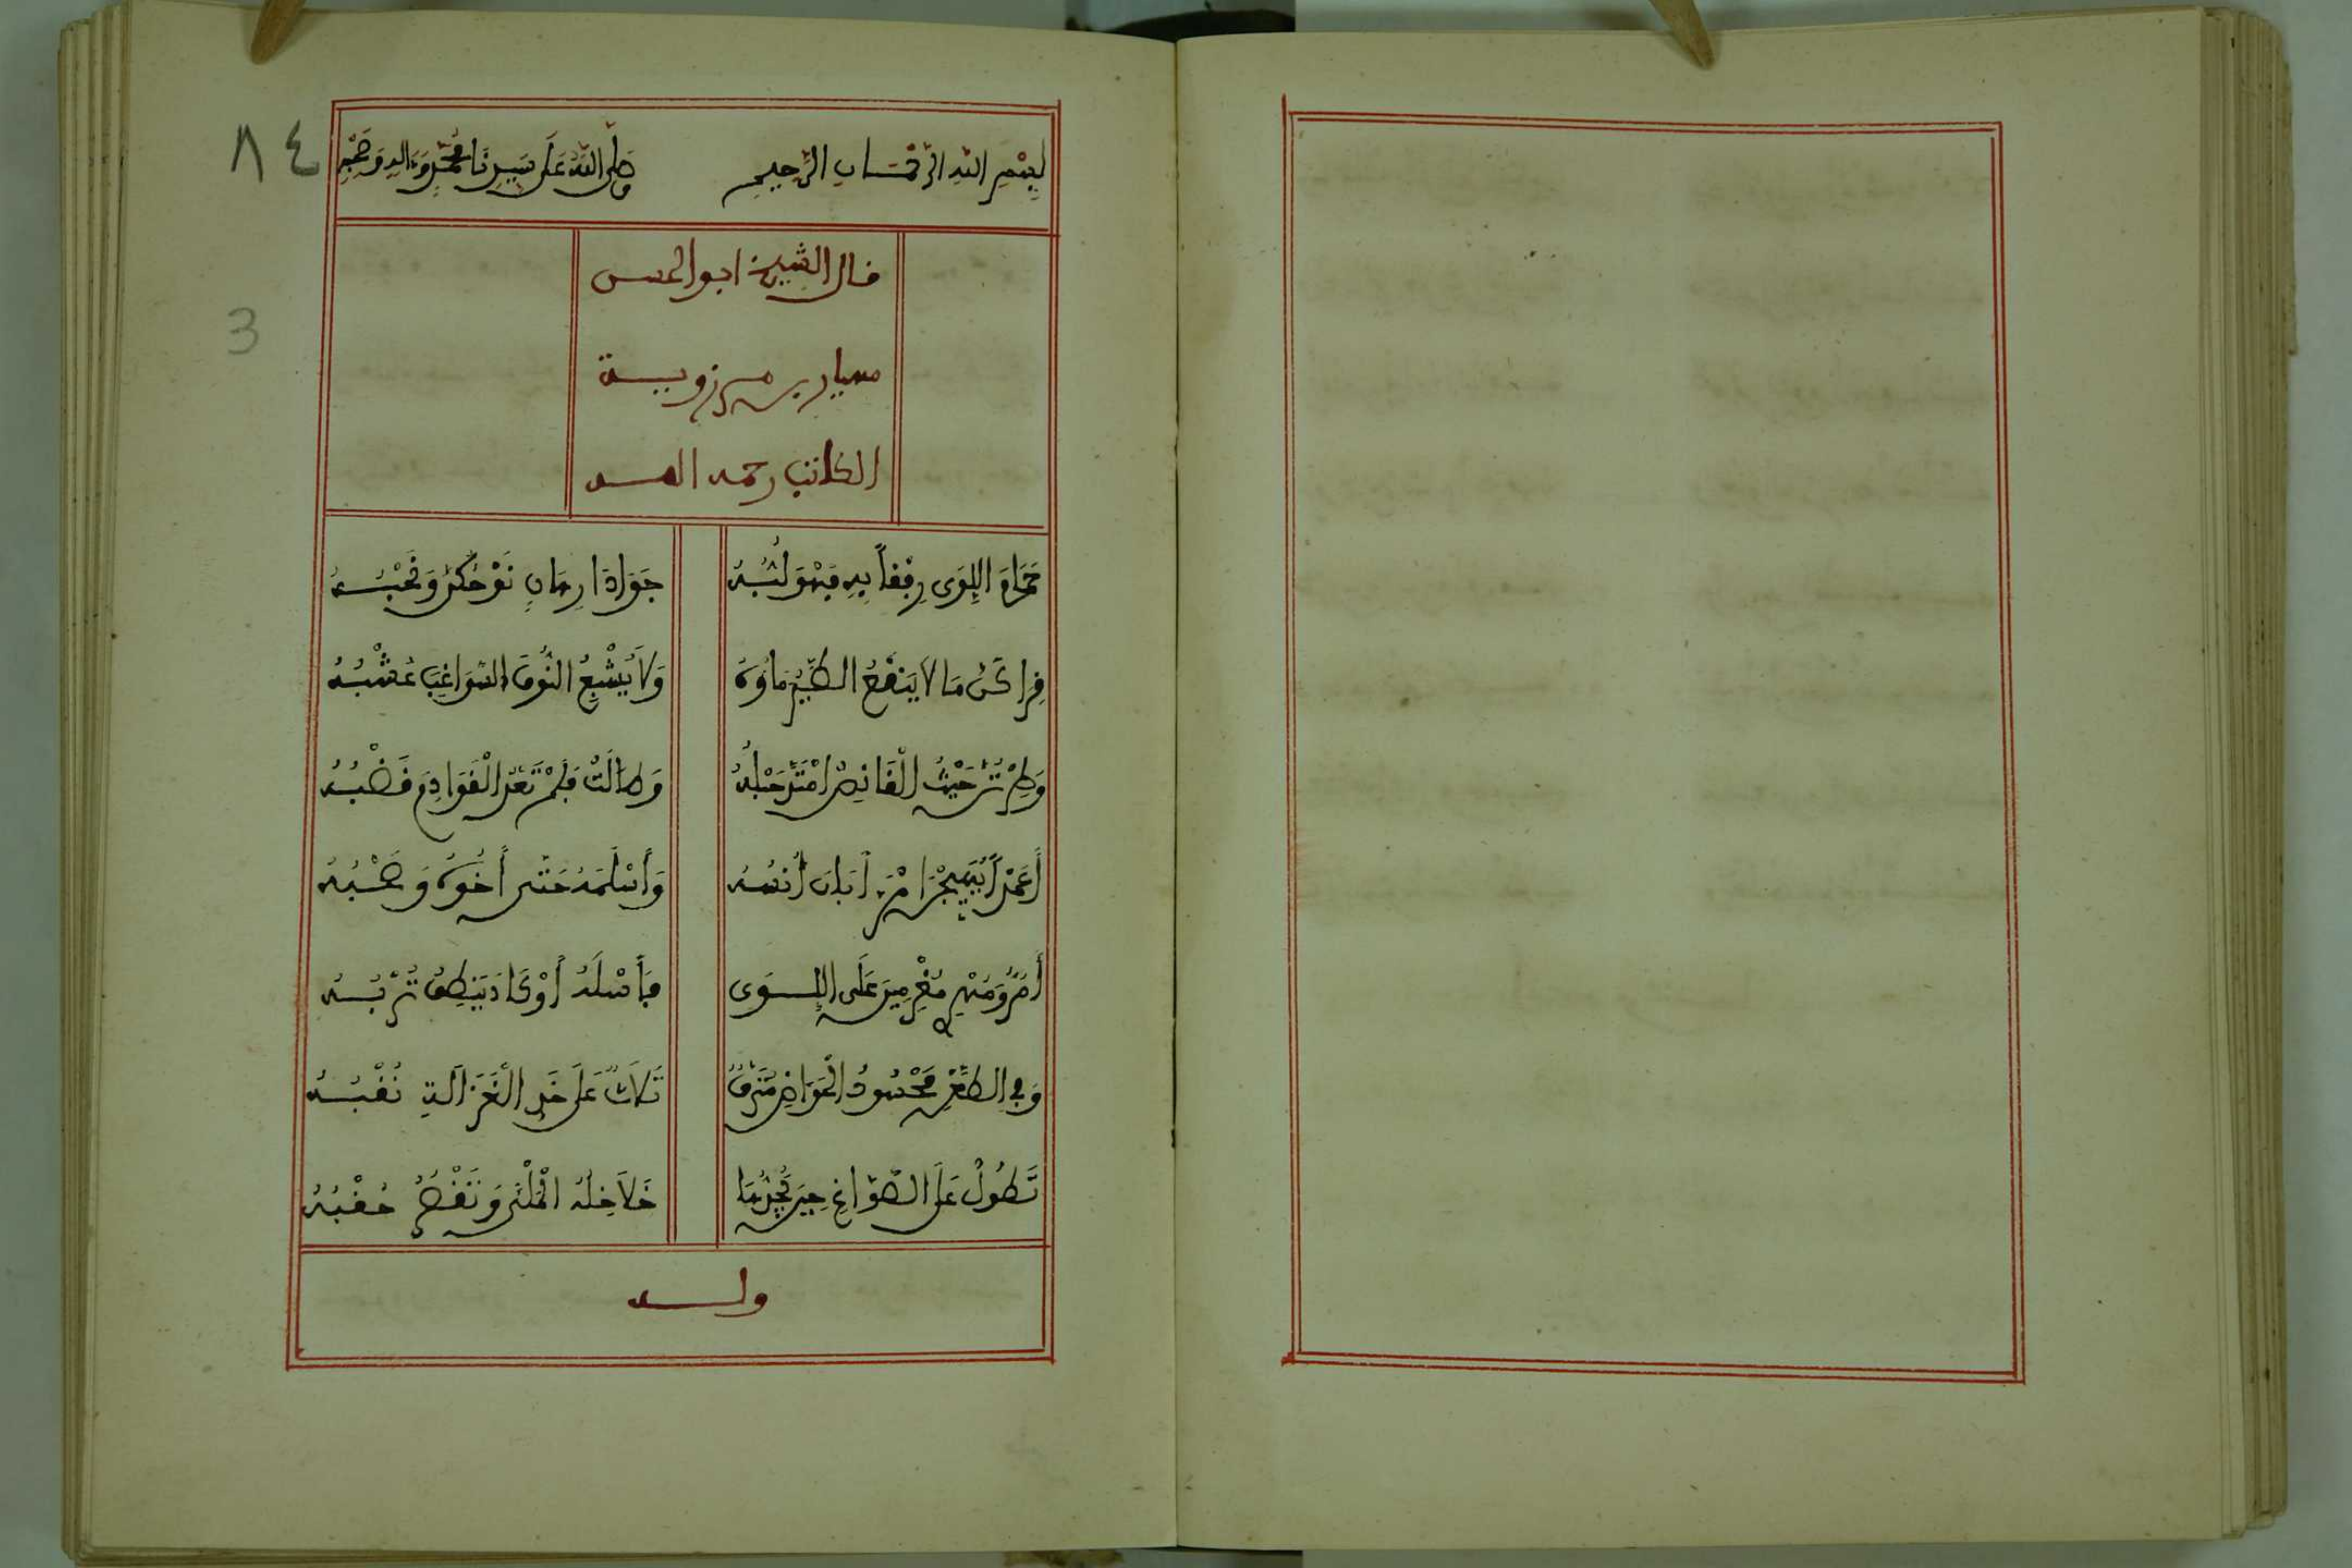 ٨٤
3
بِسْمِ اللّهِ الرّحْمَـانِ الرَّحِيمِ وَصَلَّى اللّهُ عَلَى سَيِّدِنَا مُحَمَّدٍ وَءَالِهِ وَصَحْبِهِ
قال الشيخ ابو الحسن
مهيار بن مرزويـة
الكاتب رحمه اللـه
حَمَامَ اللِّوَى رِفْقاً بِهِ فَهْوَ لُبُّهُ جَوَاداً رِهَانٍ نَوْحُكُنَّ وَنَحْبُـهُ
قِرَاكُنَّ مَا لاَ يَنْقَعُ الطَّيْرَ مَاؤُهُ وَلاَ يُشْبِعُ النُّوقَ السَّوَاغِبَ عُشْبُهُ
وَطِرْتُنَّ حَيْثُ الْقَانِصُ امْتَدَّ حَبْلُهُ وَطَالَتْ فَلَمْ تَعْدُ الْقَوَادِمَ قَضْبُهُ
أَعَمْداً يُهَيِّجْنَ امْرَءاً بَانَ أُنْسُهُ وَأَسْلَمَهُ حَتَّى أَخُوهُ وَصَحْبُهُ
أَمُرُّ وَمُنْهُ مُغْرَمِينَ عَلَى اللِّـوَى فَأَسْأَلُهُ أَوْ كَادَ يَنْطِقُ تُرْبُـهُ
وَفِي الظَّعْنِ مَحْسُودُ الْحَوَاضِنِ مُتْرَفٌ ثَلاَثٌ عَلَى خَدِ الْغَزَالَةِ نُقْبُـهُ
تَطُولُ عَلَى الصَّوَّاغِ حِينَ يُجِدُّهَا خَلاَخِلُهُ الْمَلْئَى وَتَنْقُصُ حُقْبُهُ
ولـــه